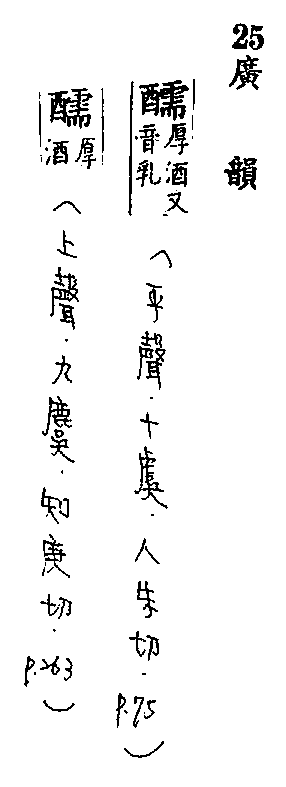 25 廣韻
醹 厚酒又音乳 (平聲．十虞．人朱切．P.75)
醹 厚酒 (上聲．九麌．知庾切．P.263)